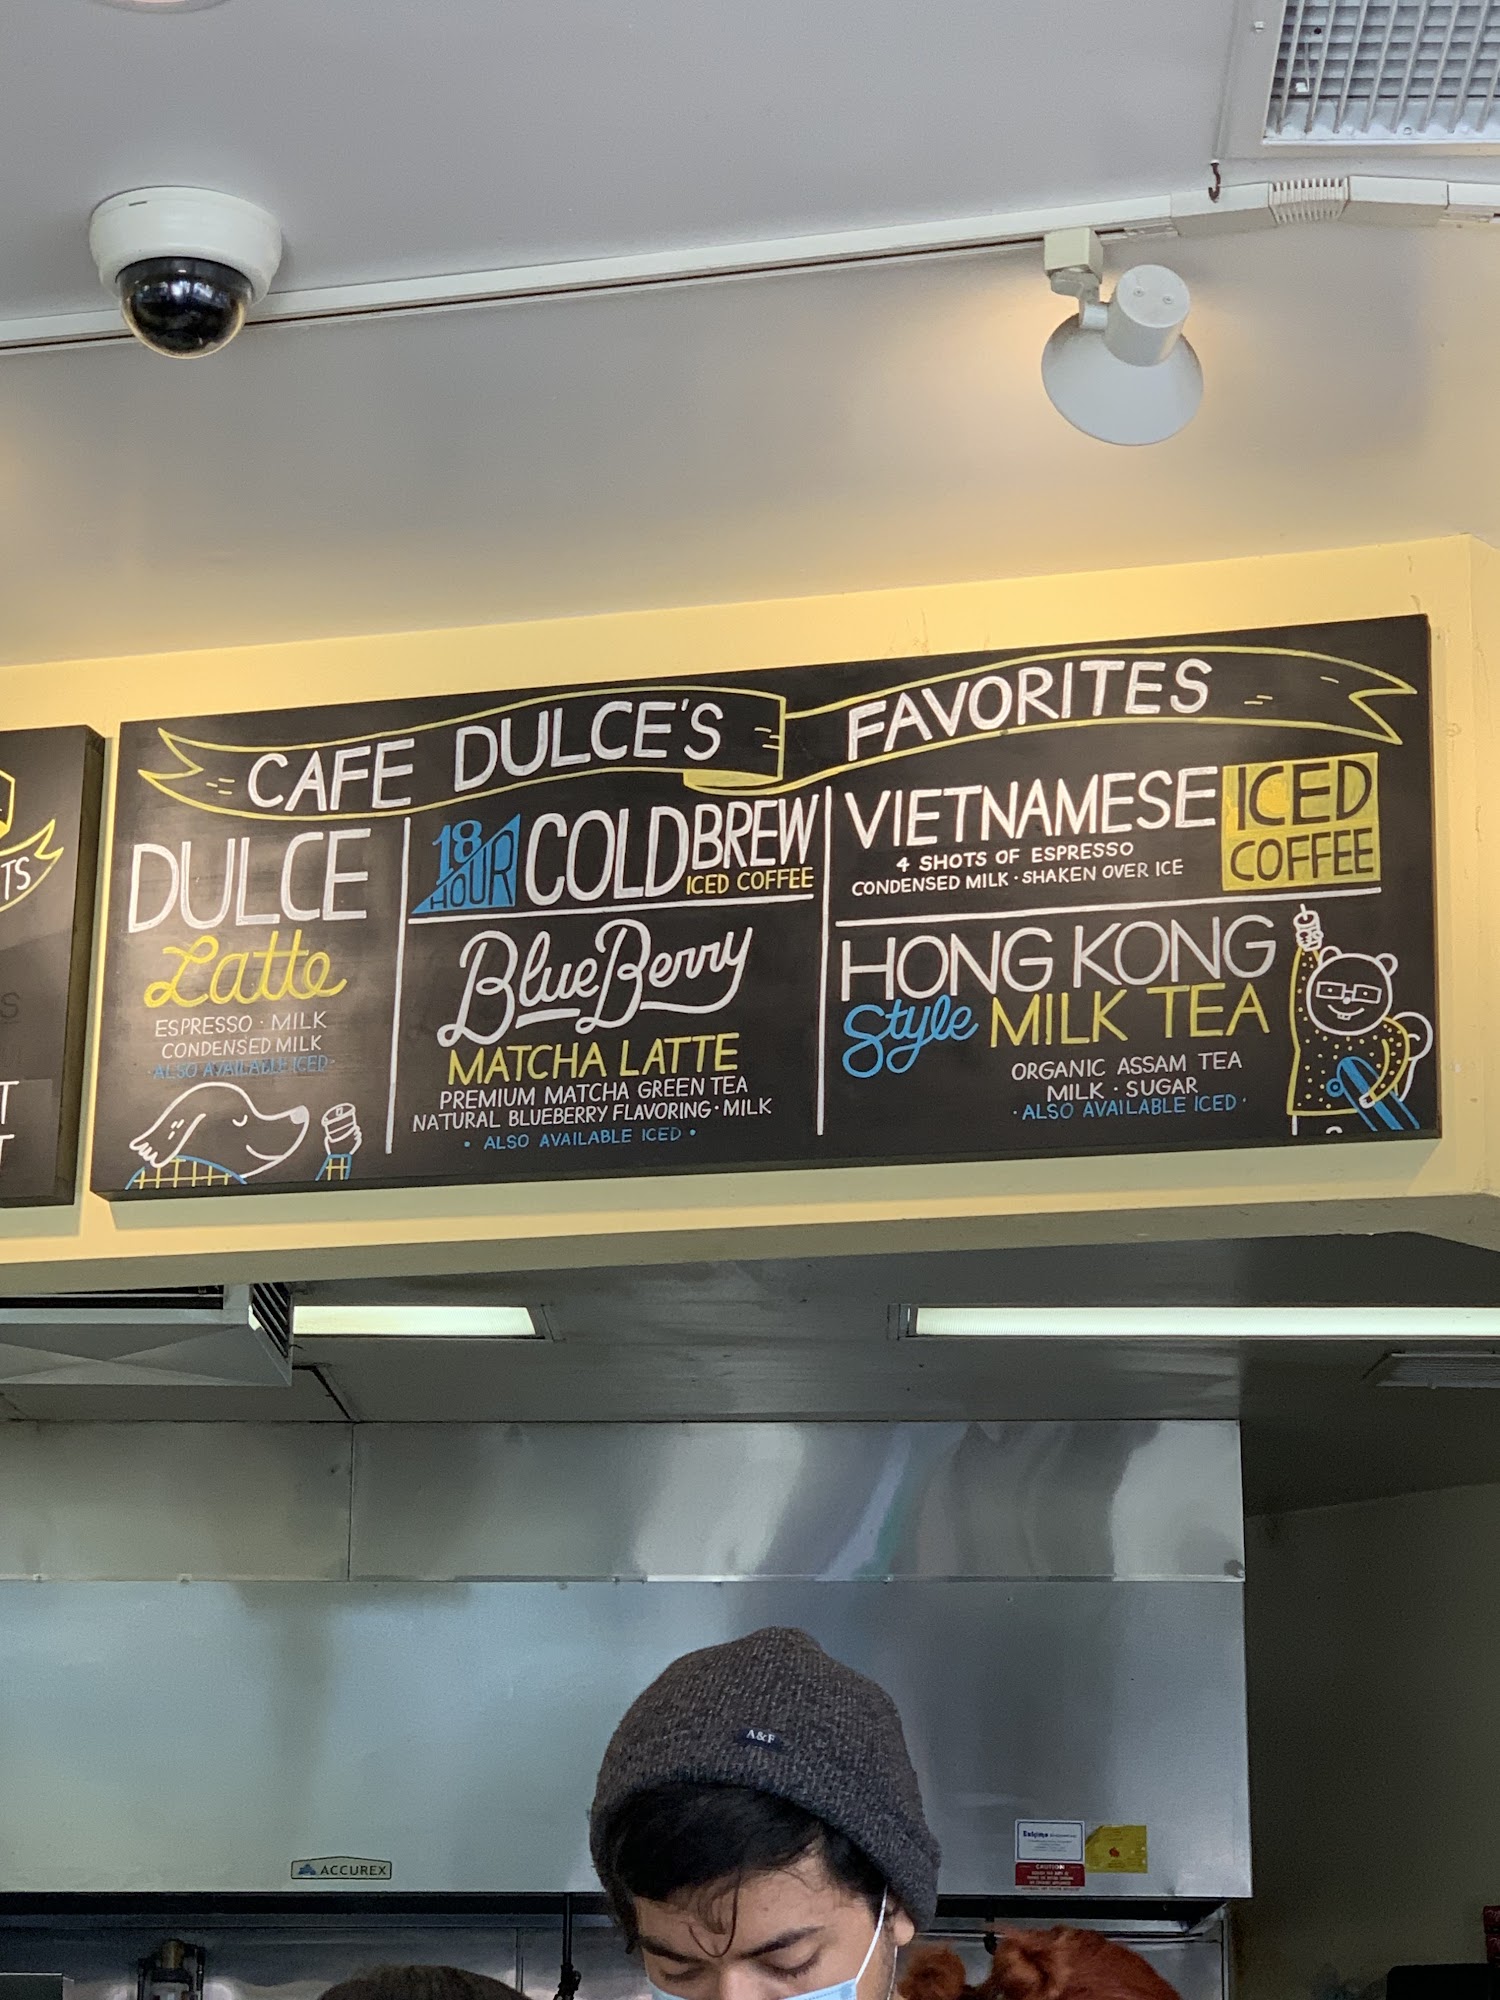 CAFE DULCE'S FAVORITES
DULCE
Latte
ESPRESSO · MILK
CONDENSED MILK
·ALSO AVAILABLE ICED·
18 HOUR COLD BREW
ICED COFFEE
BlueBerry
MATCHA LATTE
PREMIUM MATCHA GREEN TEA
NATURAL BLUEBERRY FLAVORING · MILK
• ALSO AVAILABLE ICED •
VIETNAMESE ICED COFFEE
4 SHOTS OF ESPRESSO
CONDENSED MILK · SHAKEN OVER ICE
HONG KONG
Style MILK TEA
ORGANIC ASSAM TEA
MILK · SUGAR
· ALSO AVAILABLE ICED ·
TS
S
T
T
A&F
ACCUREX
CAUTION